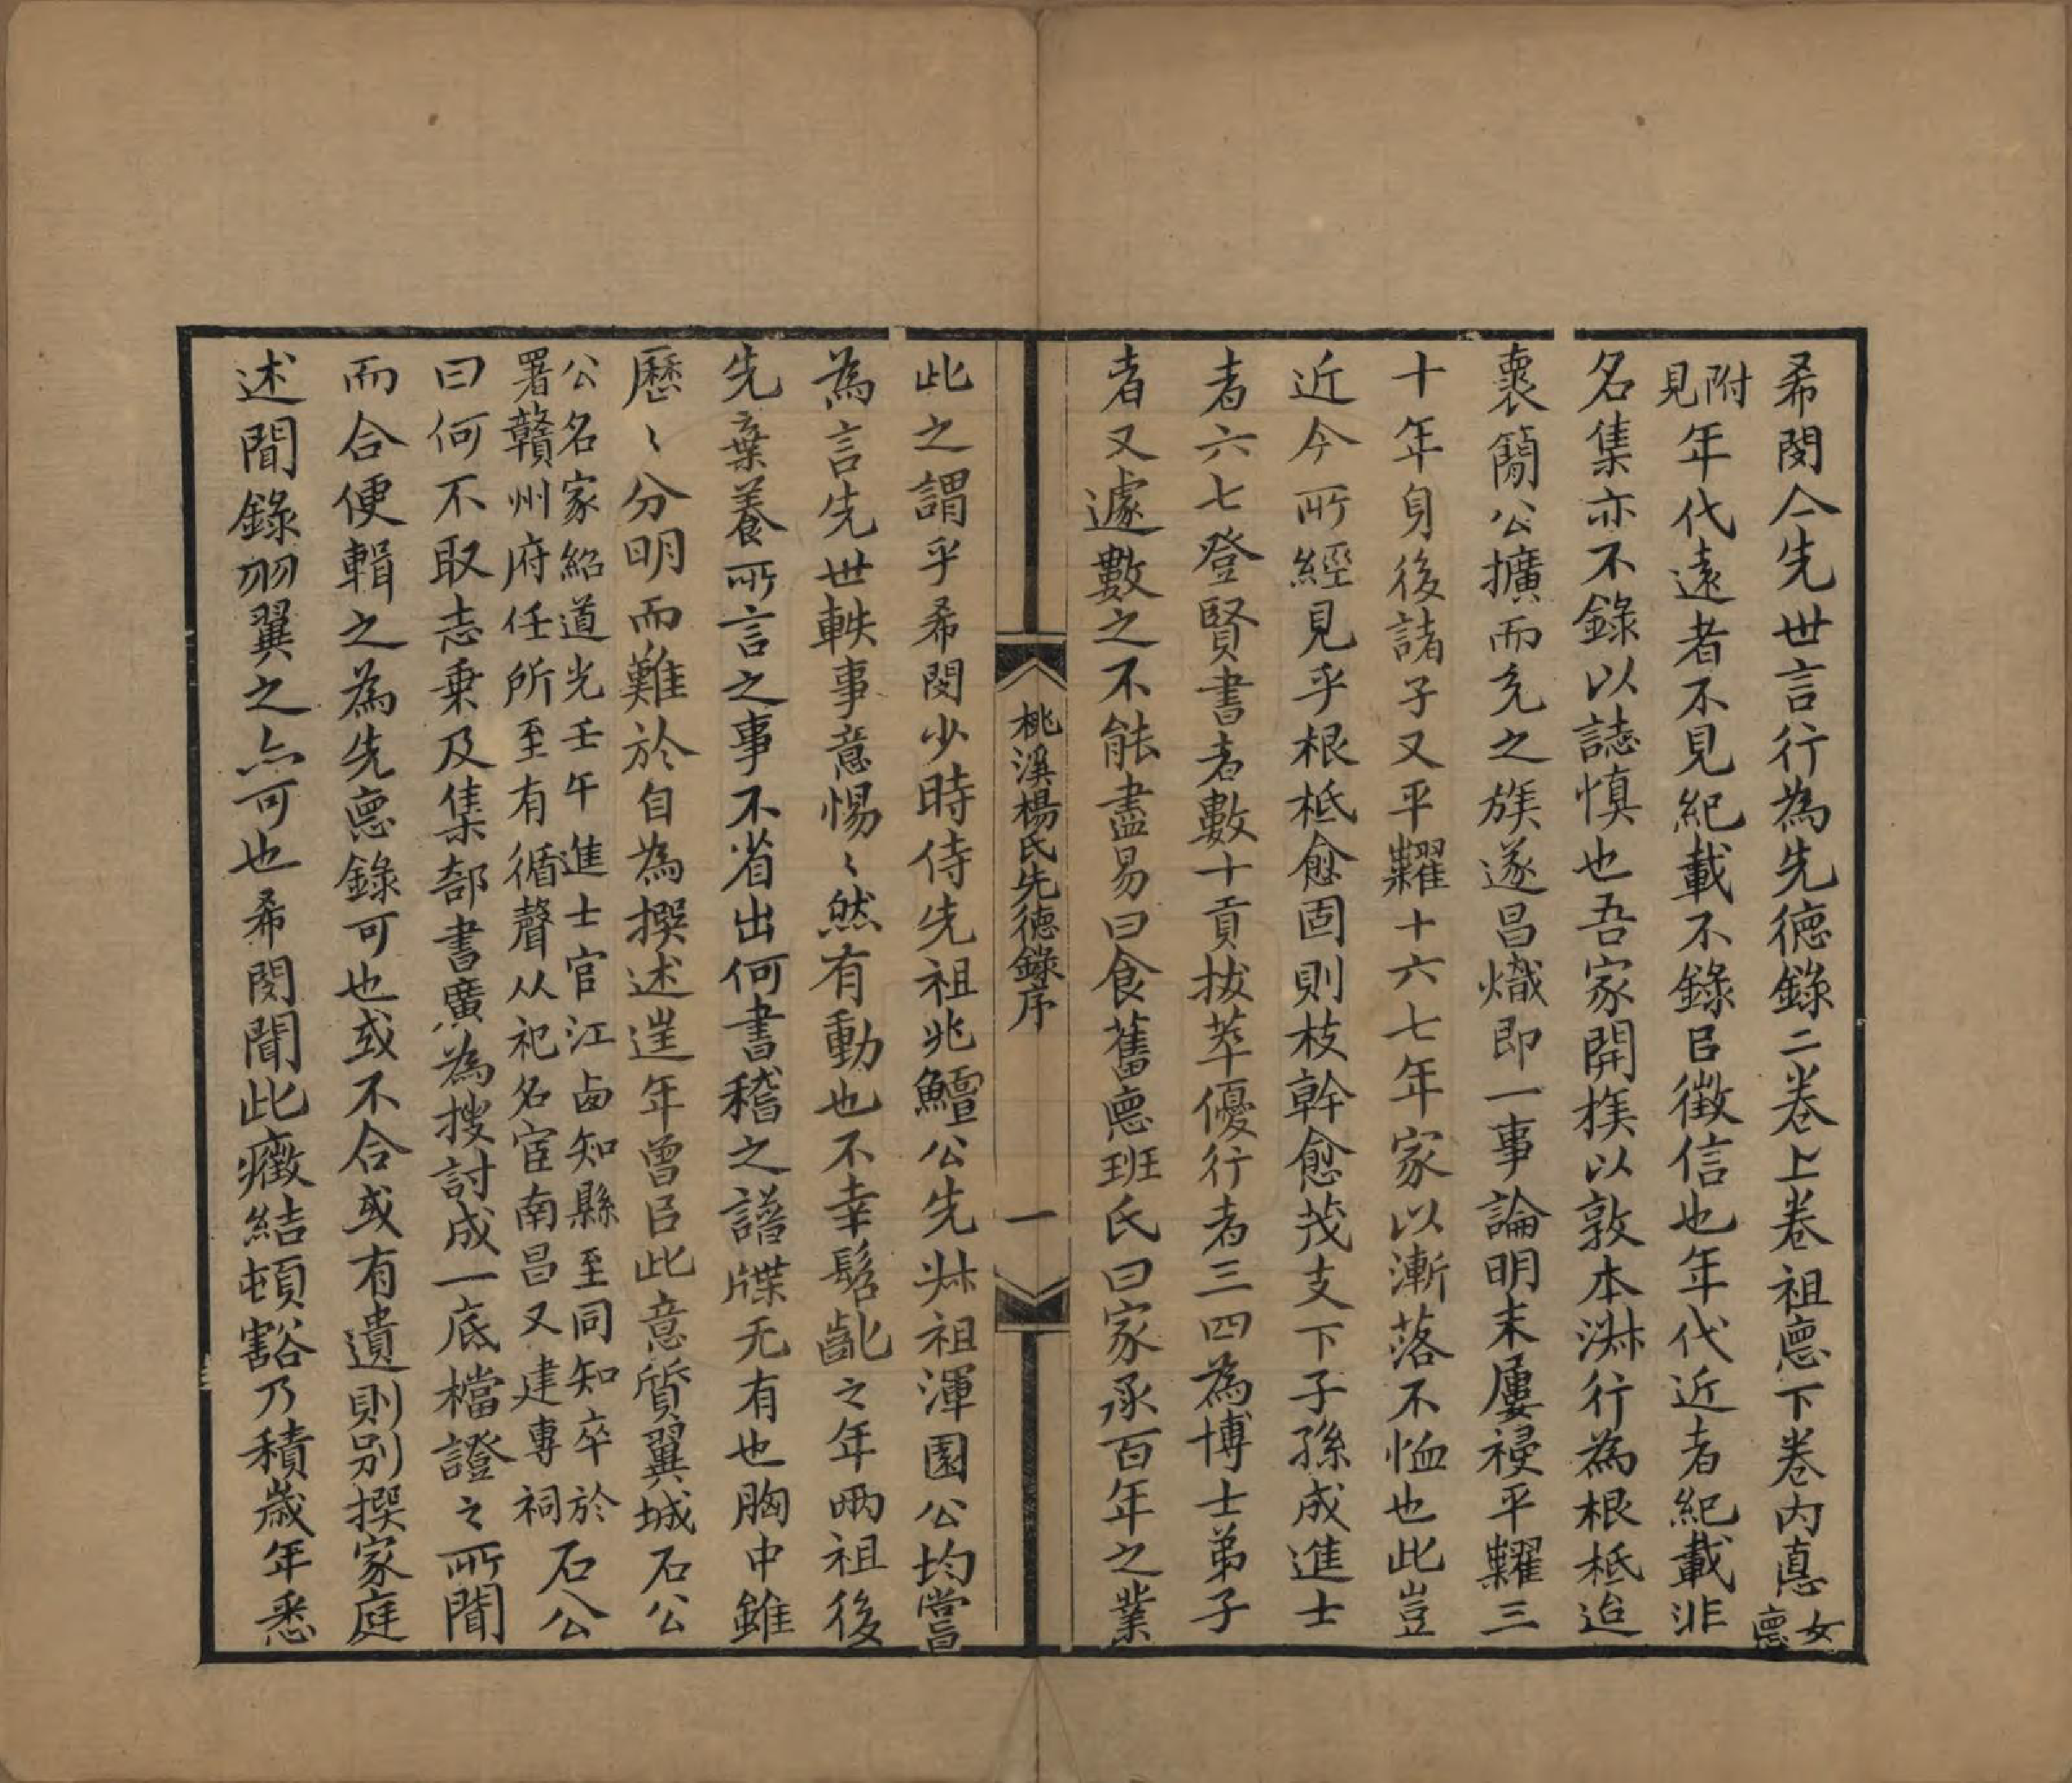 希閔亼先世言行為先德錄二卷上卷祖悳下卷內悳女悳
附見年代遠者不見紀載不錄㠯徵信也年代近者紀載非
名集亦不錄以誌慎也吾家開族以敦本淋行為根柢迨
襄簡公擴而充之族遂昌熾即一事論明末屢祲平糶三
十年身後諸子又平糶十六七年家以漸落不恤也此豈
近今所經見乎根柢愈固則枝幹愈茂支下子孫成進士
者六七登賢書者數十貢拔萃優行者三四為博士弟子
者又遽數之不能盡易曰食舊悳班氏曰家承百年之業
桃溪楊氏先德錄序
一
此之謂乎希閔少時侍先祖兆鱣公先叔祖渾園公均嘗
為言先世軼事意惕〻然有動也不幸髫齔之年兩祖後
先棄養所言之事不省出何書稽之譜牒无有也胸中雖
歷〻分明而難於自為撰述逞年曾㠯此意質翼城石公
公名家紹道光壬午進士官江卣知縣至同知卒於
署贛州府任所至有循聲从祀名宦南昌又建專祠
石公
曰何不取志乗及集部書廣為搜討成一底檔證之所聞
而合便輯之為先悳錄可也或不合或有遺則別撰家庭
述聞錄㓞翼之亦可也希閔聞此癥結頓豁乃積歲年悉